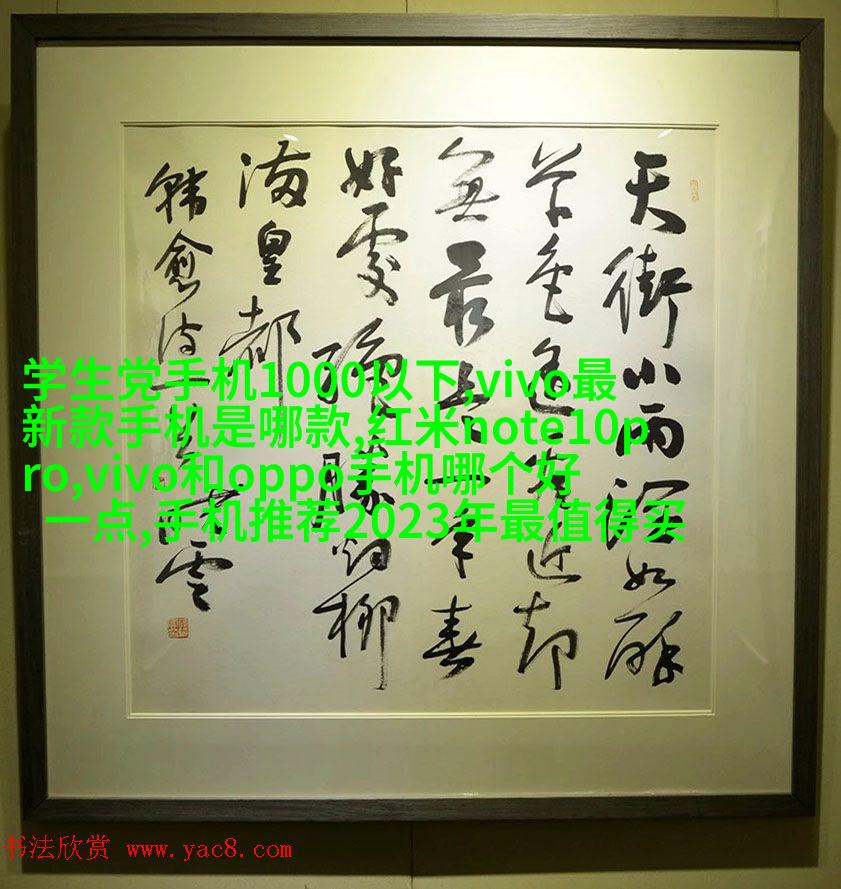 天街小雨润如酥
草色遥看近却
無最是一年春
好處绝勝烟柳
满皇都
韩愈诗一首
学生党手机1000以下,vivo最
新款手机是哪款,红米note10p
ro,vivo和oppo手机哪个好
一点,手机推荐2023年最值得买
书法欣赏 www.yac8.com